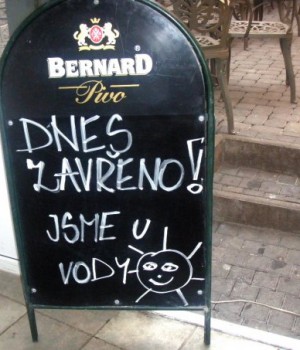 BERNARD
Pivo
DNES
ZAVŘENO!
JSME U
VODY